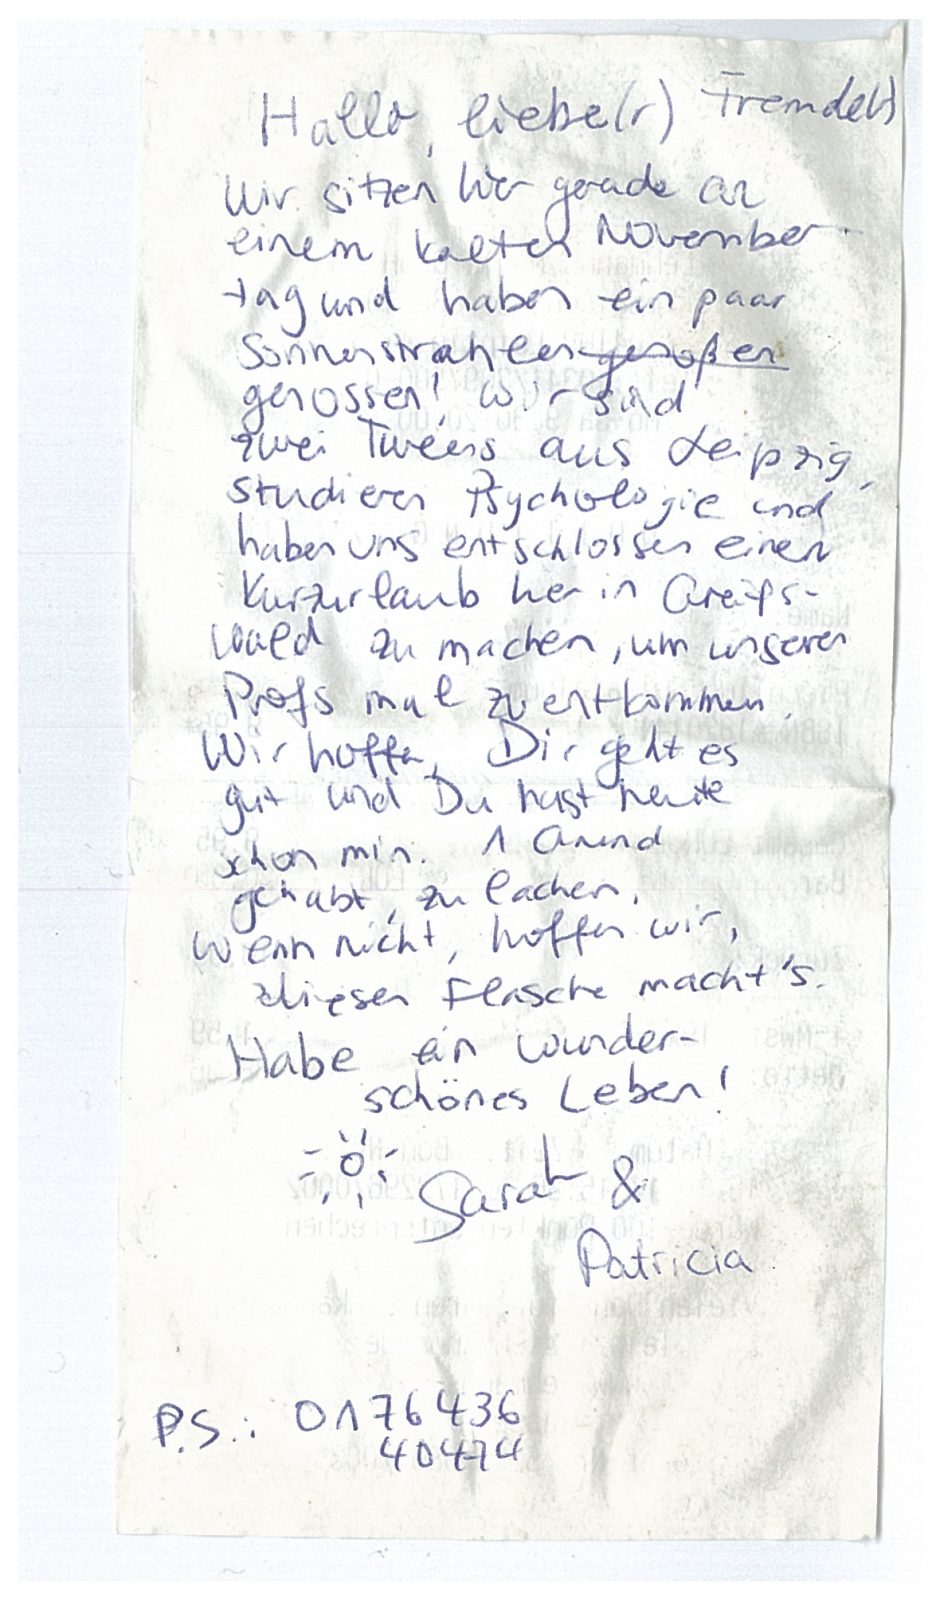 Hallo, liebe(r) Fremde(r)
Wir sitzen hier gerade an
einem kalten November-
tag und haben ein paar
Sonnenstrahlen genoßen
genossen! Wir sind
zwei Twens aus Leipzig,
studieren Psychologie und
haben uns entschlossen einen
Kurzurlaub hier in Greifs-
wald zu machen, um unseren
Profs mal zu entkommen.
Wir hoffen, Dir geht es
gut und Du hast heute
schon min. 1 Grund
gehabt, zu lachen.
Wenn nicht, hoffen wir,
diesen Flasche macht's.
Habe ein wunder-
schönes Leben!
Sarah &
Patricia
P.S.: 0176436
40474